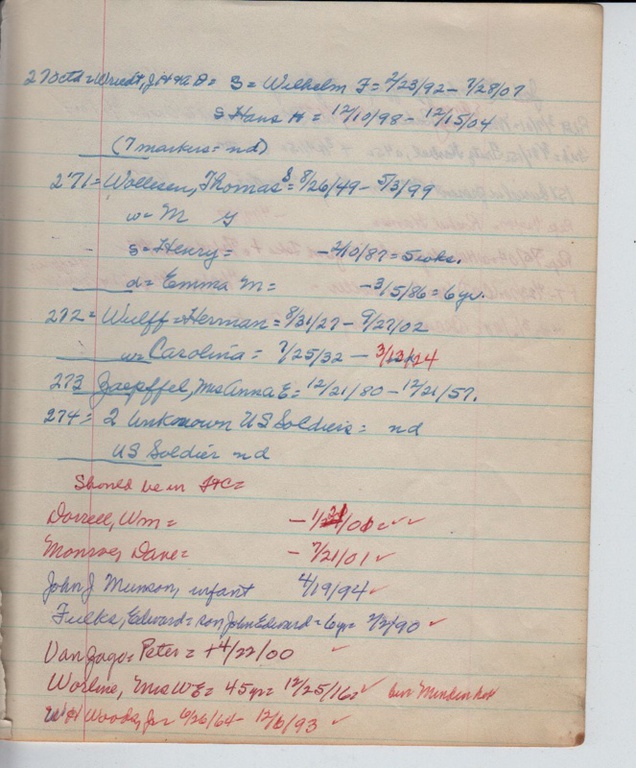 270 ctd = Wriedt, J H & A D = S = Wilhelm F = 2/23/92 - 7/28/07
s Hans H = 12/10/98 - 12/15/04
(7 markers = nd)
271 = Wollesen, Thomas S = 8/26/49 - 5/3/99
w = M
s = Henry = - 2/10/87 = 5 wks.
d = Emma M = - 3/5/86 = 6 yr.
272 = Wulff = Herman = 8/31/27 - 9/27/02
w = Carolina = 7/25/32 - 3/13/24
273 Zaepffel, Mrs Anna E = 12/21/80 - 12/21/57.
274 = 2 Unknown US Soldiers = nd
US Soldier nd
Should be in =
Dorrell, Wm = - 1/21/01 =
Monroe, Dave = - 7/21/01
John J Munson, infant 4/19/94
Fulks, Edward = son John Edward = 6 yr = 2/2/90
Van Jago = Peter = + 4/22/00
Worline, Mrs W E = 45 yr = 12/25/16 =
W H Woods, Jr 6/26/64 - 12/6/93